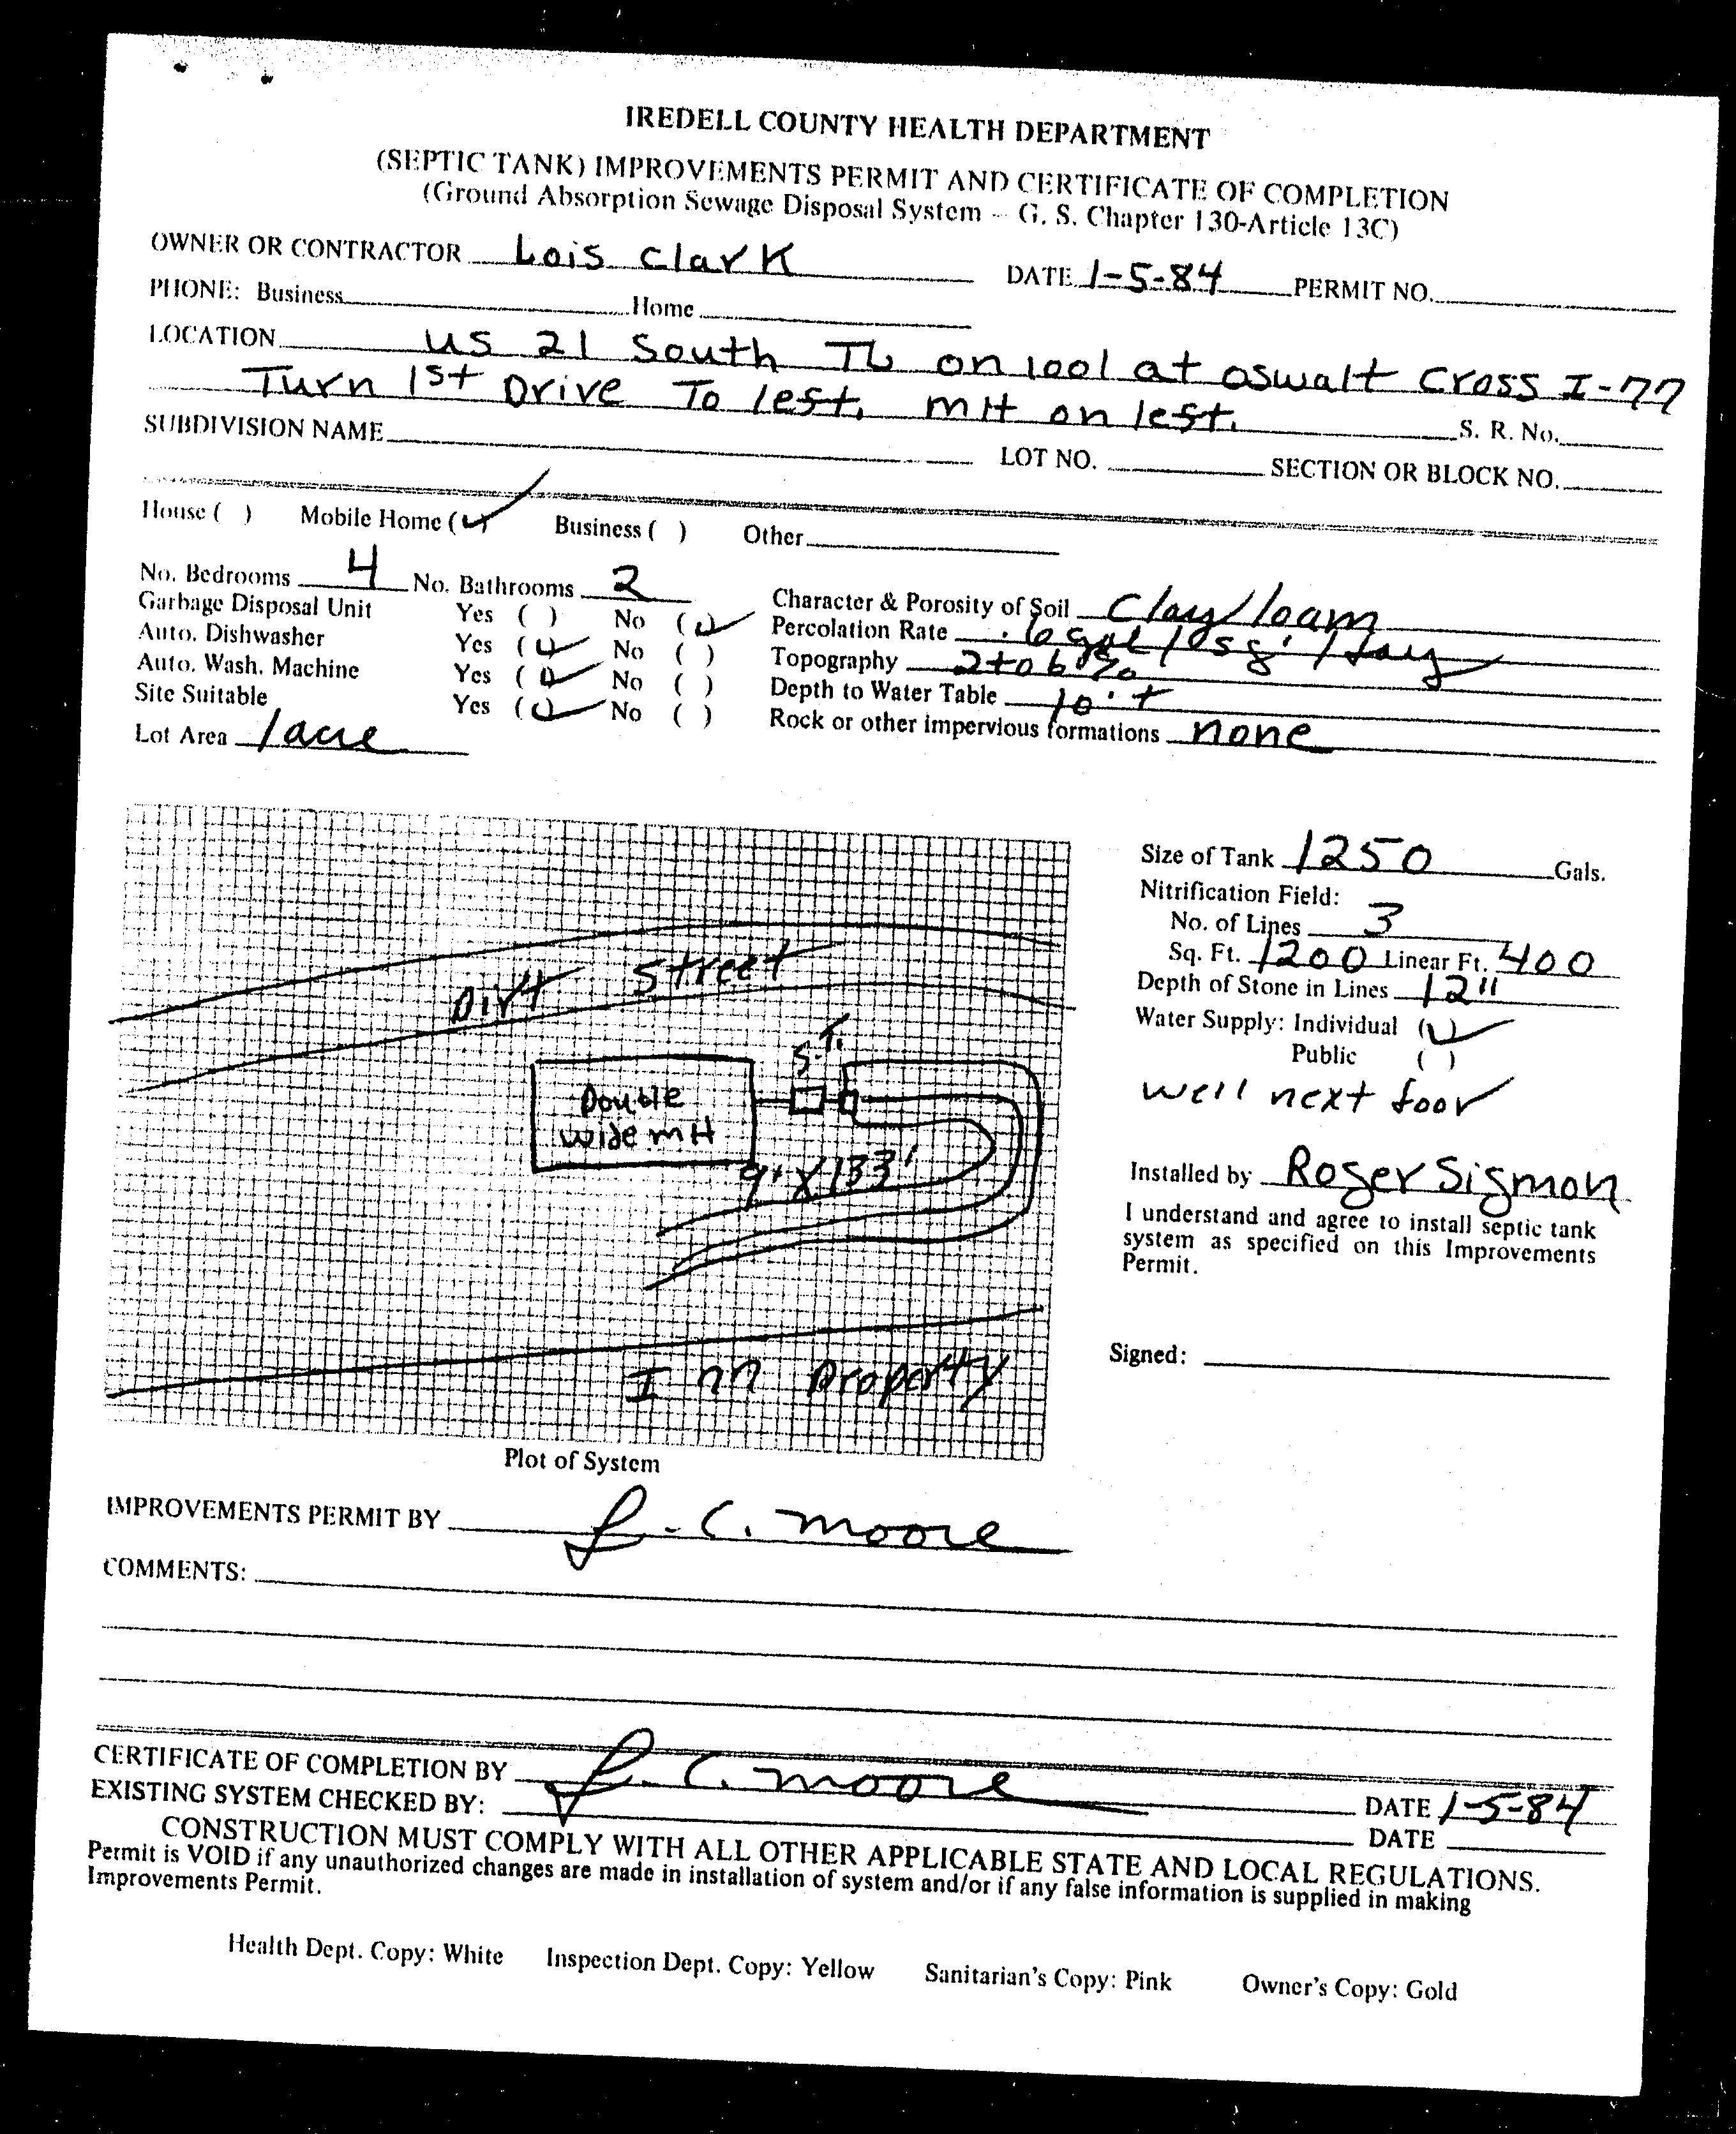 IREDELL COUNTY HEALTH DEPARTMENT
(SEPTIC TANK) IMPROVEMENTS PERMIT AND CERTIFICATE OF COMPLETION
(Ground Absorption Sewage Disposal System -- G. S. Chapter 130-Article 13C)
OWNER OR CONTRACTOR Lois Clark DATE 1-5-84 PERMIT NO.
PHONE: Business Home
LOCATION US 21 South TL on 1001 at oswalt Cross I-77
Turn 1st Drive To left. mH on left. S. R. No.
SUBDIVISION NAME LOT NO. SECTION OR BLOCK NO.
House ( ) Mobile Home (✓) Business ( ) Other
No. Bedrooms 4 No. Bathrooms 2 Character & Porosity of Soil Clay/loam
Garbage Disposal Unit Yes ( ) No (✓) Percolation Rate /day
Auto. Dishwasher Yes (✓) No ( ) Topography 2 to 6%
Auto. Wash. Machine Yes (✓) No ( ) Depth to Water Table 10'+
Site Suitable Yes (✓) No ( ) Rock or other impervious formations none
Lot Area 1 acre
Dirt Street
S.T.
Double
wide mH
9' X 133'
I 77 Property
Plot of System
Size of Tank 1250 Gals.
Nitrification Field:
No. of Lines 3
Sq. Ft. 1200 Linear Ft. 400
Depth of Stone in Lines 12"
Water Supply: Individual (✓)
Public ( )
well next door
Installed by Roger Sigmon
I understand and agree to install septic tank
system as specified on this Improvements
Permit.
Signed:
IMPROVEMENTS PERMIT BY L. C. Moore
COMMENTS:
CERTIFICATE OF COMPLETION BY L. C. Moore DATE 1-5-84
EXISTING SYSTEM CHECKED BY: DATE
CONSTRUCTION MUST COMPLY WITH ALL OTHER APPLICABLE STATE AND LOCAL REGULATIONS.
Permit is VOID if any unauthorized changes are made in installation of system and/or if any false information is supplied in making
Improvements Permit.
Health Dept. Copy: White Inspection Dept. Copy: Yellow Sanitarian's Copy: Pink Owner's Copy: Gold